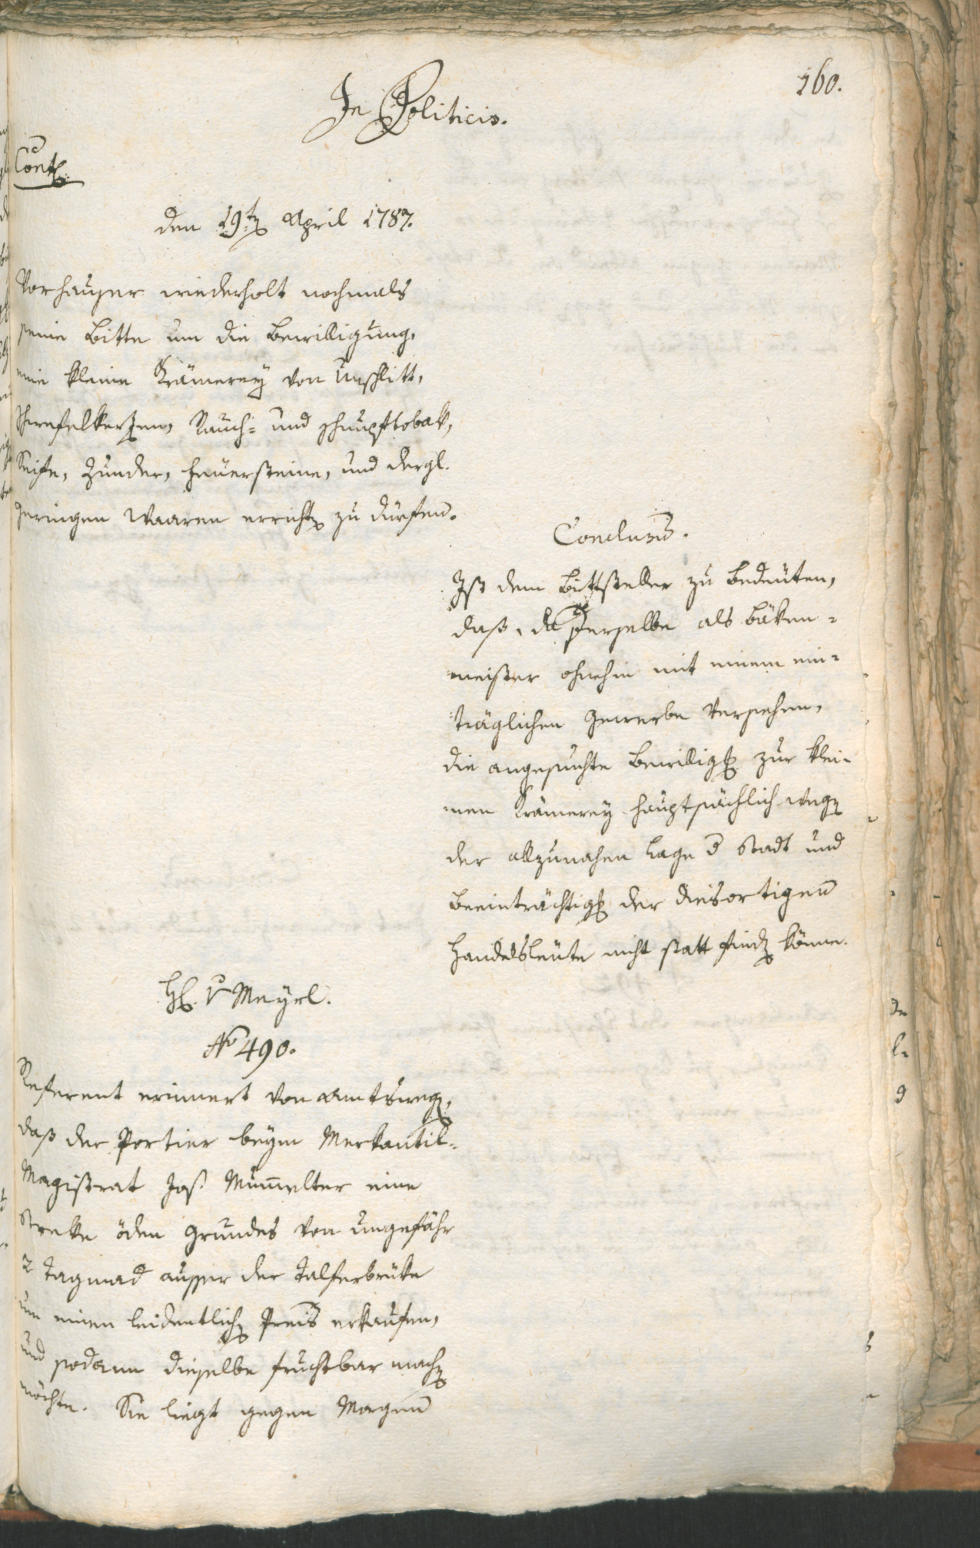 160.
In Politicis.
Cont.
den 19t April 1787.
Vorhauser wiederholt nochmals
seine Bitte um die Bewilligung,
eine kleine Krämerey von Unschlitt,
Schwefelkerzen, Rauch- und Schnupftobak,
Seife, Zunder, Feuersteine, und dergl.
geringen Waaren erricht zu dürfen.
Conclusum.
Ist dem Bittsteller zu bedeuten,
daß, da derselbe als Bäken-
meister ohnehin mit einem ein-
träglichen Gewerbe versehen,
die angesuchte Bewillig zur klei-
nen Krämerey hauptsächlich weg
der allzunahen Lage d Stadt und
Beeinträchtig der diesortigen
Handelsleute nicht statt find könne.
H. v Meyrl.
No 490.
Referent erinnert von Amtsweg,
daß der Portier beym Merkantil-
Magistrat Jos. Mumelter eine
Streke öden Grundes von ungefähr
2 Tagmad ausser der Talferbrüke
um einen leidentlich Preis erkaufen,
und sodann dieselbe fruchtbar mach
möchte. Sie liegt gegen Morgen